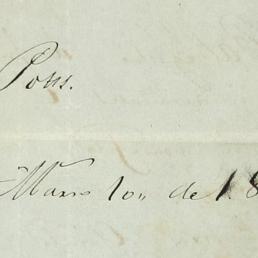 Pons.
Marzo 1º de 18